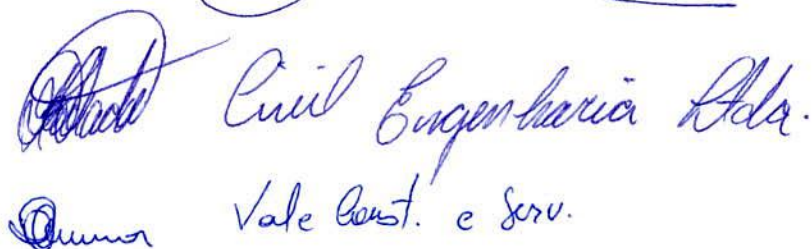 Civil Engenharia Ltda.
Vale Const. e Serv.